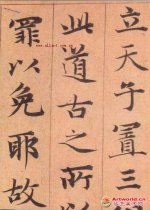 立天子置三
此道古之所以
罪以免耶故
Artworld.cn